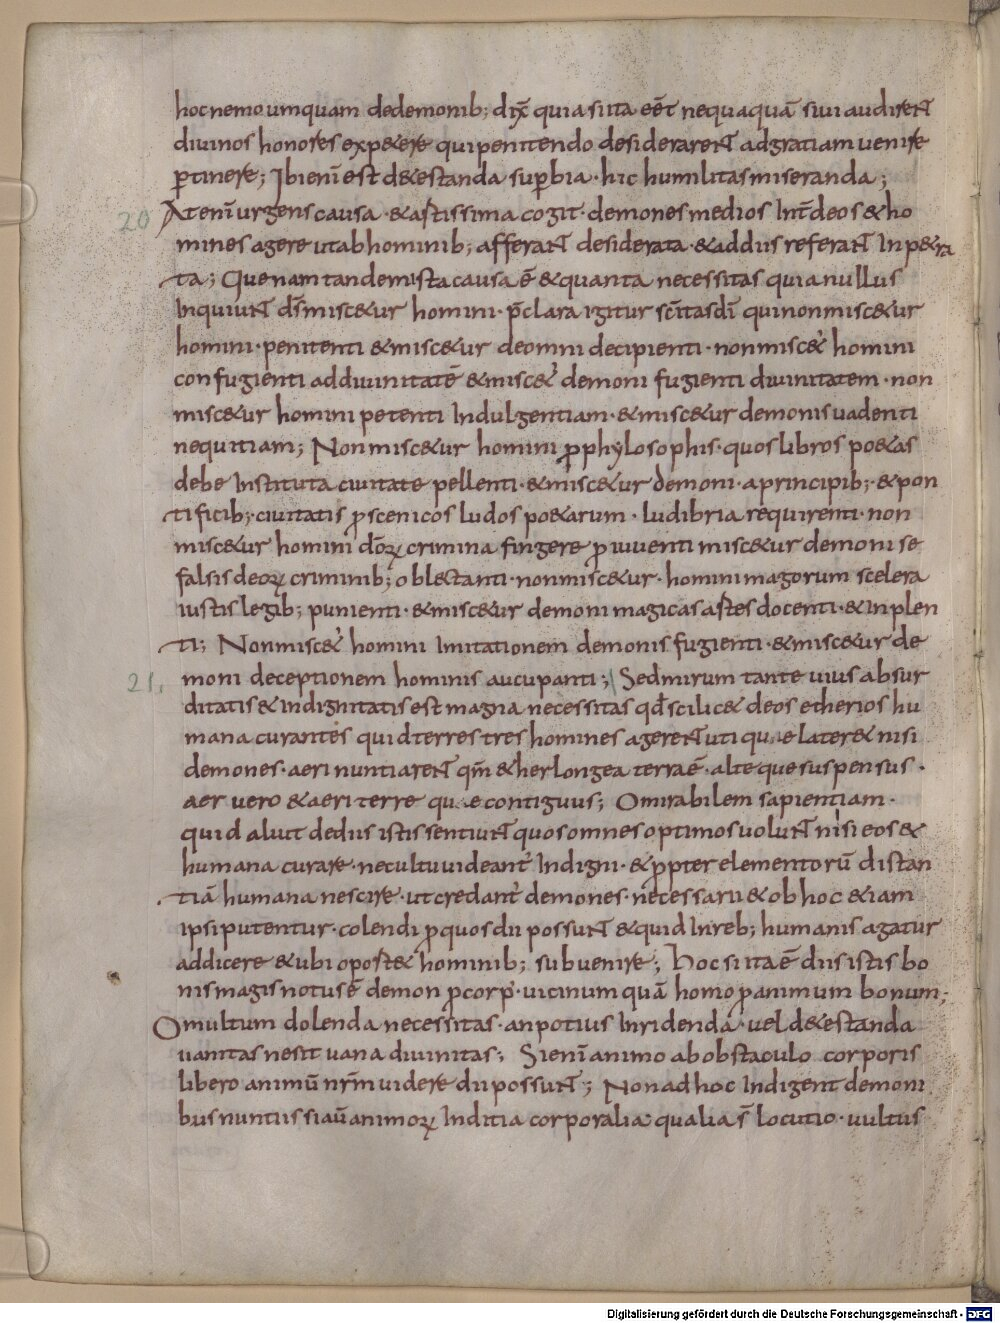 hoc nemo umquam dedemonib; dix̄ quia si ita eēt nequaquā suui audirent
divinos honores expetere qui penitendo desiderarent adgratiam uenire
ꝑtinere; Ibi eni ̄ est detestanda suꝑbia · hic humilitas miseranda;
20 At eni ̄ urgens causa · & astissima cogit · demones medios Int̄ deos & ho
mines agere ut ab hominib; afferant desiderata · & addiis referant Inpetra
ta; Quenam tandem ista causa ē & quanta necessitas quia nullus
Inquiunt ds̄ miscetur homini · p̄clara igitur sc̄itas dī qui non miscetur
homini · penitenti & miscetur deomni decipienti · non miscet̉ homini
confugienti addiuinitatē & miscet̉ demoni fugienti diuinitatem · non
miscetur homini petenti Indulgentiam · & miscetur demoni suadenti
nequitiam; Non miscetur homini ꝑ phylosophis · quos libros poetas
debe Instituta ciuitate pellenti · & miscetur demoni · a principib; · & pon
tificib; · ciuitatis ꝑ scenicos ludos poetarum · ludibria requirenti · non
miscetur homini dōꝝ crimina fingere ꝓiuuenti miscetur demoni se
falsis deoꝝ criminib; oblectanti · non miscetur · homini magorum scelera
iustis legib; punienti · & miscetur demoni magicas astes docenti · & Inplen
ti; Non miscet̉ homini Imitationem demonis fugienti · & miscetur de
21. moni deceptionem hominis aucupanti; Sed mirum tante uius absur
ditatis & indignitatis est magna necessitas qd̄ scilicet deos etherios hu
mana curantes quid terrestres homines agerent uti que lateret nisi
demones · aeri nuntiarent qm̄ & her longe a terra ē · alteque suspensus ·
aer uero & aeri terre que contiguus; O mirabilem sapientiam ·
quid aluit dediis istis sentiunt quos omnes optimos uolunt nisi eos &
humana curare · necultu uideant̉ Indigni · & ꝓpter elementorū distan
tiā humana nescire · ut credant̉ demones · necessarii & ob hoc & iam
ipsi putentur · colendi ꝑ quos dii possunt & quid Inreb; humanis agatur
addicere & ubi oportet hominib; subuenire; Hoc si ita ē diis istis bo
nis magis notus ē demon ꝑ corp̉ · uicinum quā homo ꝑ animum bonum;
O multum dolenda necessitas · an potius Inridenda · uel detestanda
uanitas ne sit uana diuinitas; Si eni ̄ animo ab obstaculo corporis
libero animū nr̄m uidere dii possunt; Non ad hoc Indigent demoni
bus nuntiis si aū animoꝝ Inditia corporalia qualia s̄ locutio · uultus
Digitalisierung gefördert durch die Deutsche Forschungsgemeinschaft - DFG